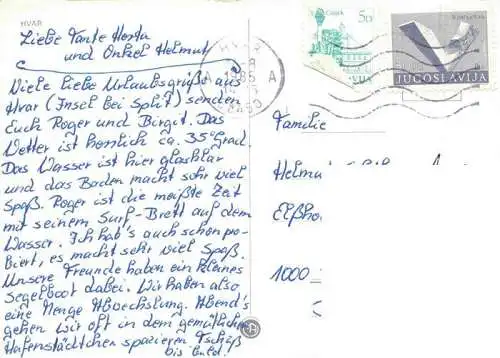 HVAR
Liebe Tante Herta
und Onkel Helmut,
Viele liebe Urlaubsgrüße aus
Hvar (Insel bei Split) senden
Euch Roger und Birgit. Das
Wetter ist herrlich ca. 35° Grad.
Das Wasser ist hier glasklar
und das Baden macht sehr viel
Spaß. Roger ist die meißte Zeit
mit seinem Surf-Brett auf dem
Wasser. Ich hab's auch schon pro-
biert, es macht sehr viel Spaß.
Unsere Freunde haben ein kleines
Segelboot dabei. Wir haben also
eine Menge Abwechslung. Abend's
gehen wir oft in dem gemütlichen
Hafenstädtchen spazieren. Tschüß
bis bald!
HVAR
A
50
JUGOSLAVIJA
Familie
Helmu
1000